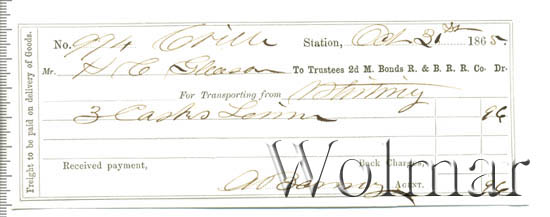 Freight to be paid on delivery of Goods.
No. 974 C ville Station, Oct 31st 1865.
Mr. H C Gleason To Trustees 2d M. Bonds R. & B. R. R. Co. Dr.
For Transporting from Whiting
3 Casks Lime 96
Received payment, Back Charges,
AGENT. 96
Wolmar